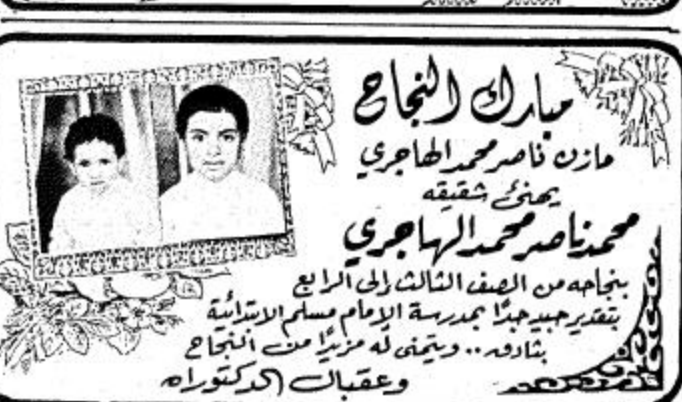 مبارك النجاح
مازن ناصر محمد الهاجري
يهنئ شقيقه
محمد ناصر محمد الهاجري
بنجاحه من الصف الثالث إلى الرابع
بتقدير جيد جدًا بمدرسة الإمام مسلم الابتدائية
بثادق .. ويتمنى له مزيدًا من النجاح
وعقبال الدكتوراه